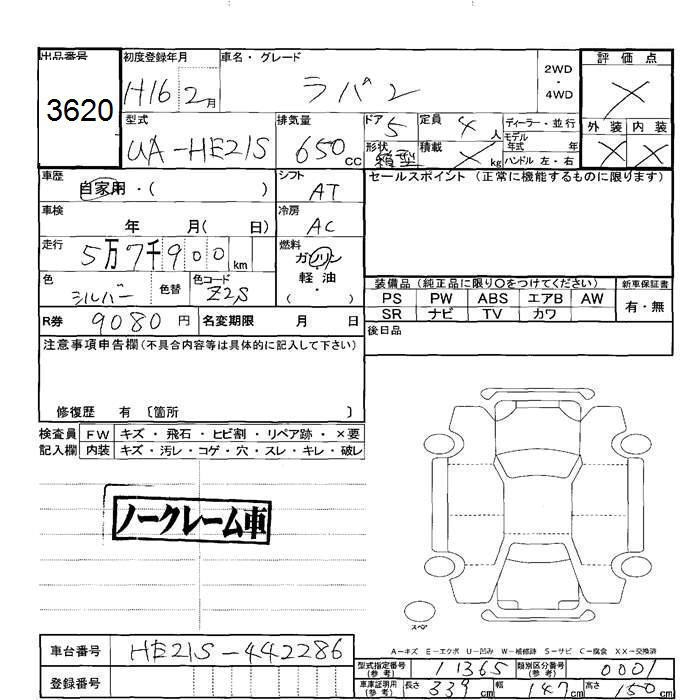 出品番号 初度登録年月 車名・グレード 2WD・4WD 評価点
3620 H16 2月 ラパン X
型式 排気量 ドア 定員 ディーラー・並行 外装 内装
UA-HE21S 650cc 5 4人 モデル年式 年 X X
形状 箱型 積載 X kg ハンドル 左・右
車歴 シフト セールスポイント (正常に機能するものに限ります)
自家用・( ) AT
車検 年 月( 日) 冷房 AC
走行 5万7千900km 燃料 ガソリン 軽油・( )
色 シルバー 色替 色コード Z2S
装備品 (純正品に限り○をつけてください) 新車保証書
PS PW ABS エアB AW 有・無
SR ナビ TV カワ
R券 9080円 名変期限 月 日 後日品
注意事項申告欄(不具合内容等は具体的に記入して下さい)
修復歴 有 〔箇所 〕
検査員 FW キズ・飛石・ヒビ割・リペア跡・×要
記入欄 内装 キズ・汚レ・コゲ・穴・スレ・キレ・破レ
ノークレーム車
スペア
A－キズ E－エクボ U－凹み W－補修跡 S－サビ C－腐食 XX－交換済
車台番号 HE21S-442286
型式指定番号(参考) 11365 類別区分番号(参考) 0001
登録番号
車庫証明用(参考) 長さ 339cm 幅 147cm 高さ 150cm